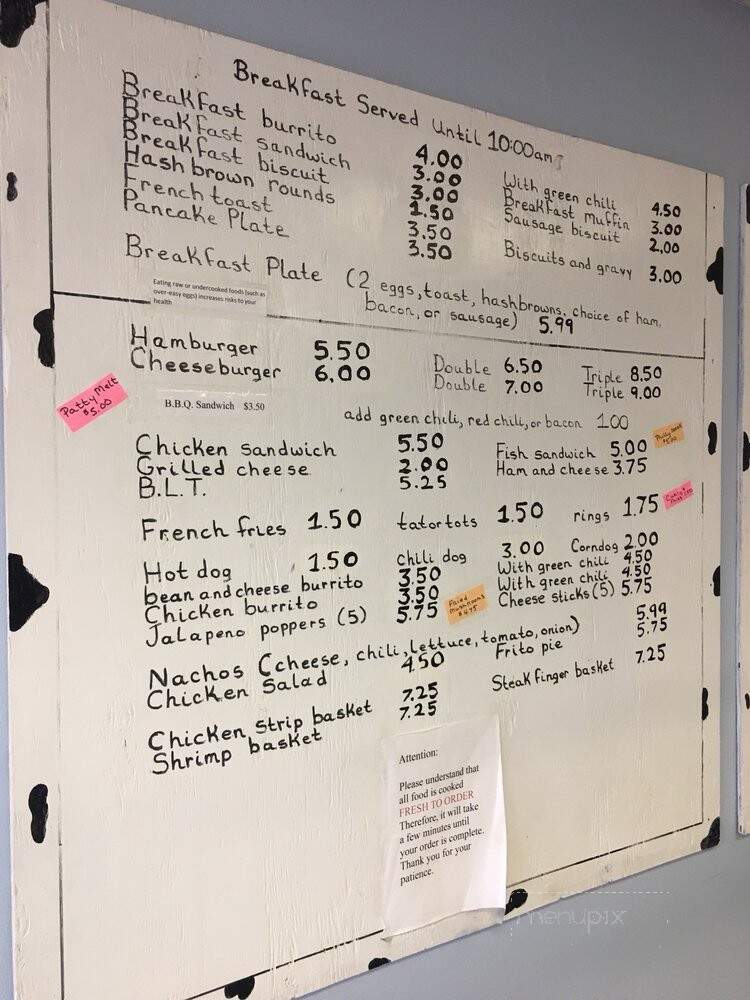 Breakfast Served Until 10:00am
Breakfast burrito 4.00 With green chili 4.50
Breakfast sandwich 3.00 Breakfast muffin 3.00
Breakfast biscuit 3.00 Sausage biscuit 2.00
Hash brown rounds 1.50
French toast 3.50 Biscuits and gravy 3.00
Pancake Plate 3.50
Breakfast Plate (2 eggs, toast, hashbrowns, choice of ham,
bacon, or sausage) 5.99
Eating raw or undercooked foods (such as
over-easy eggs) increases risks to your
health
Hamburger 5.50 Double 6.50 Triple 8.50
Cheeseburger 6.00 Double 7.00 Triple 9.00
Patty Melt
$5.00
B.B.Q. Sandwich $3.50
add green chili, red chili, or bacon 1.00
Chicken sandwich 5.50 Fish sandwich 5.00
Grilled cheese 2.00 Ham and cheese 3.75
B.L.T. 5.25
French fries 1.50 tator tots 1.50 rings 1.75
Hot dog 1.50 chili dog 3.00 Corndog 2.00
bean and cheese burrito 3.50 With green chili 4.50
Chicken burrito 3.50 With green chili 4.50
Jalapeno poppers (5) 5.75 Cheese sticks (5) 5.75
Fried
mushrooms
Nachos (cheese, chili, lettuce, tomato, onion) 5.99
Chicken Salad 4.50 Frito pie 5.75
Chicken strip basket 7.25 Steak finger basket 7.25
Shrimp basket 7.25
Attention:
Please understand that
all food is cooked
FRESH TO ORDER
Therefore, it will take
a few minutes until
your order is complete.
Thank you for your
patience.
menupix